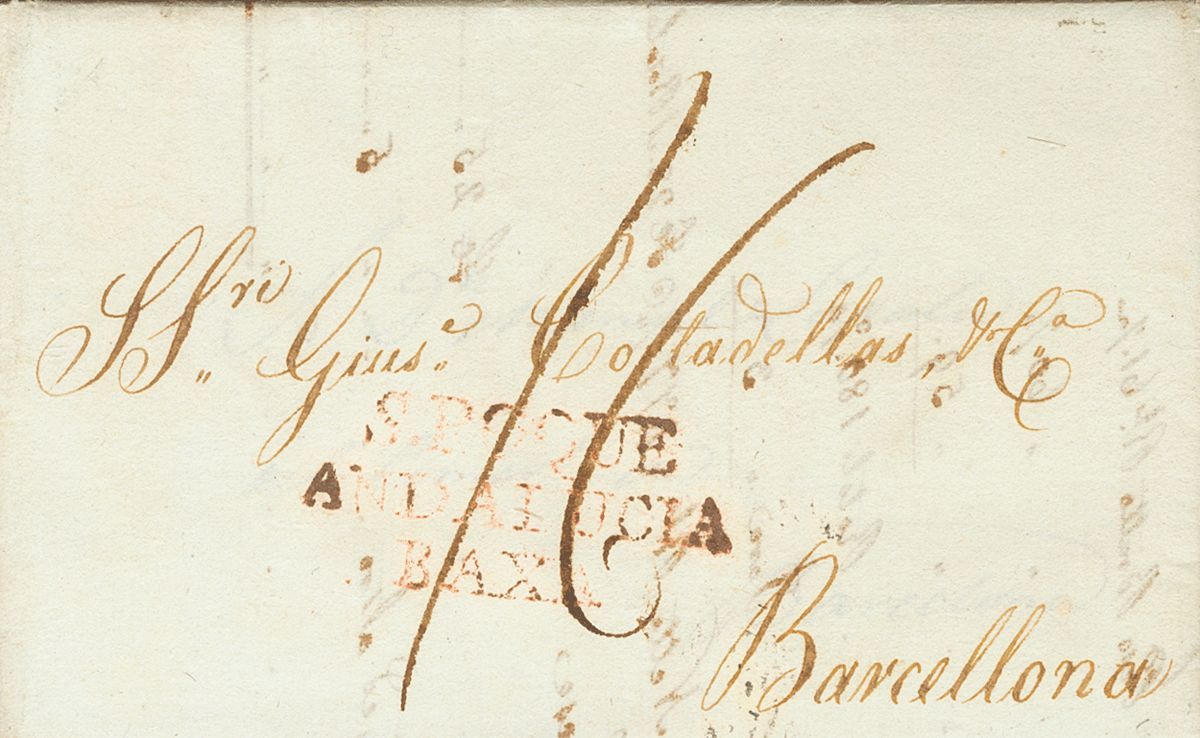 SS.ri Gius.e Costadellas, & C.a
16
S.ROQUE
ANDALUCIA
BAXA
Barcellona